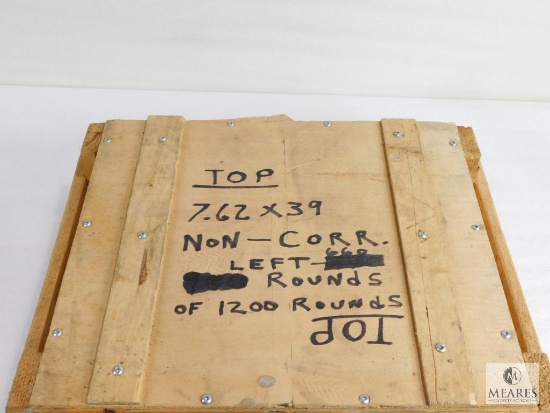 TOP
7.62 x 39
NON-CORR.
660
LEFT
ROUNDS
OF 1200 ROUNDS
TOP
MEARES